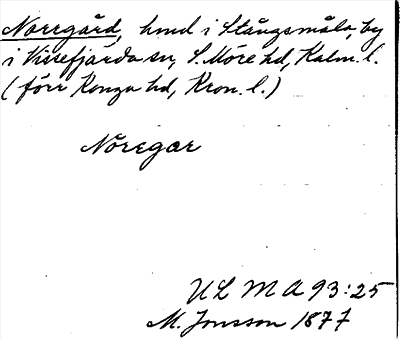 Norregård, hmd i Stångsmåla, by
i Vissefjärda sn, S. Möre hd, Kalm. l.
(förr Konga hd, Kron. l.)
Nöregar
ULMA 93:25
M. Jonsson 1877